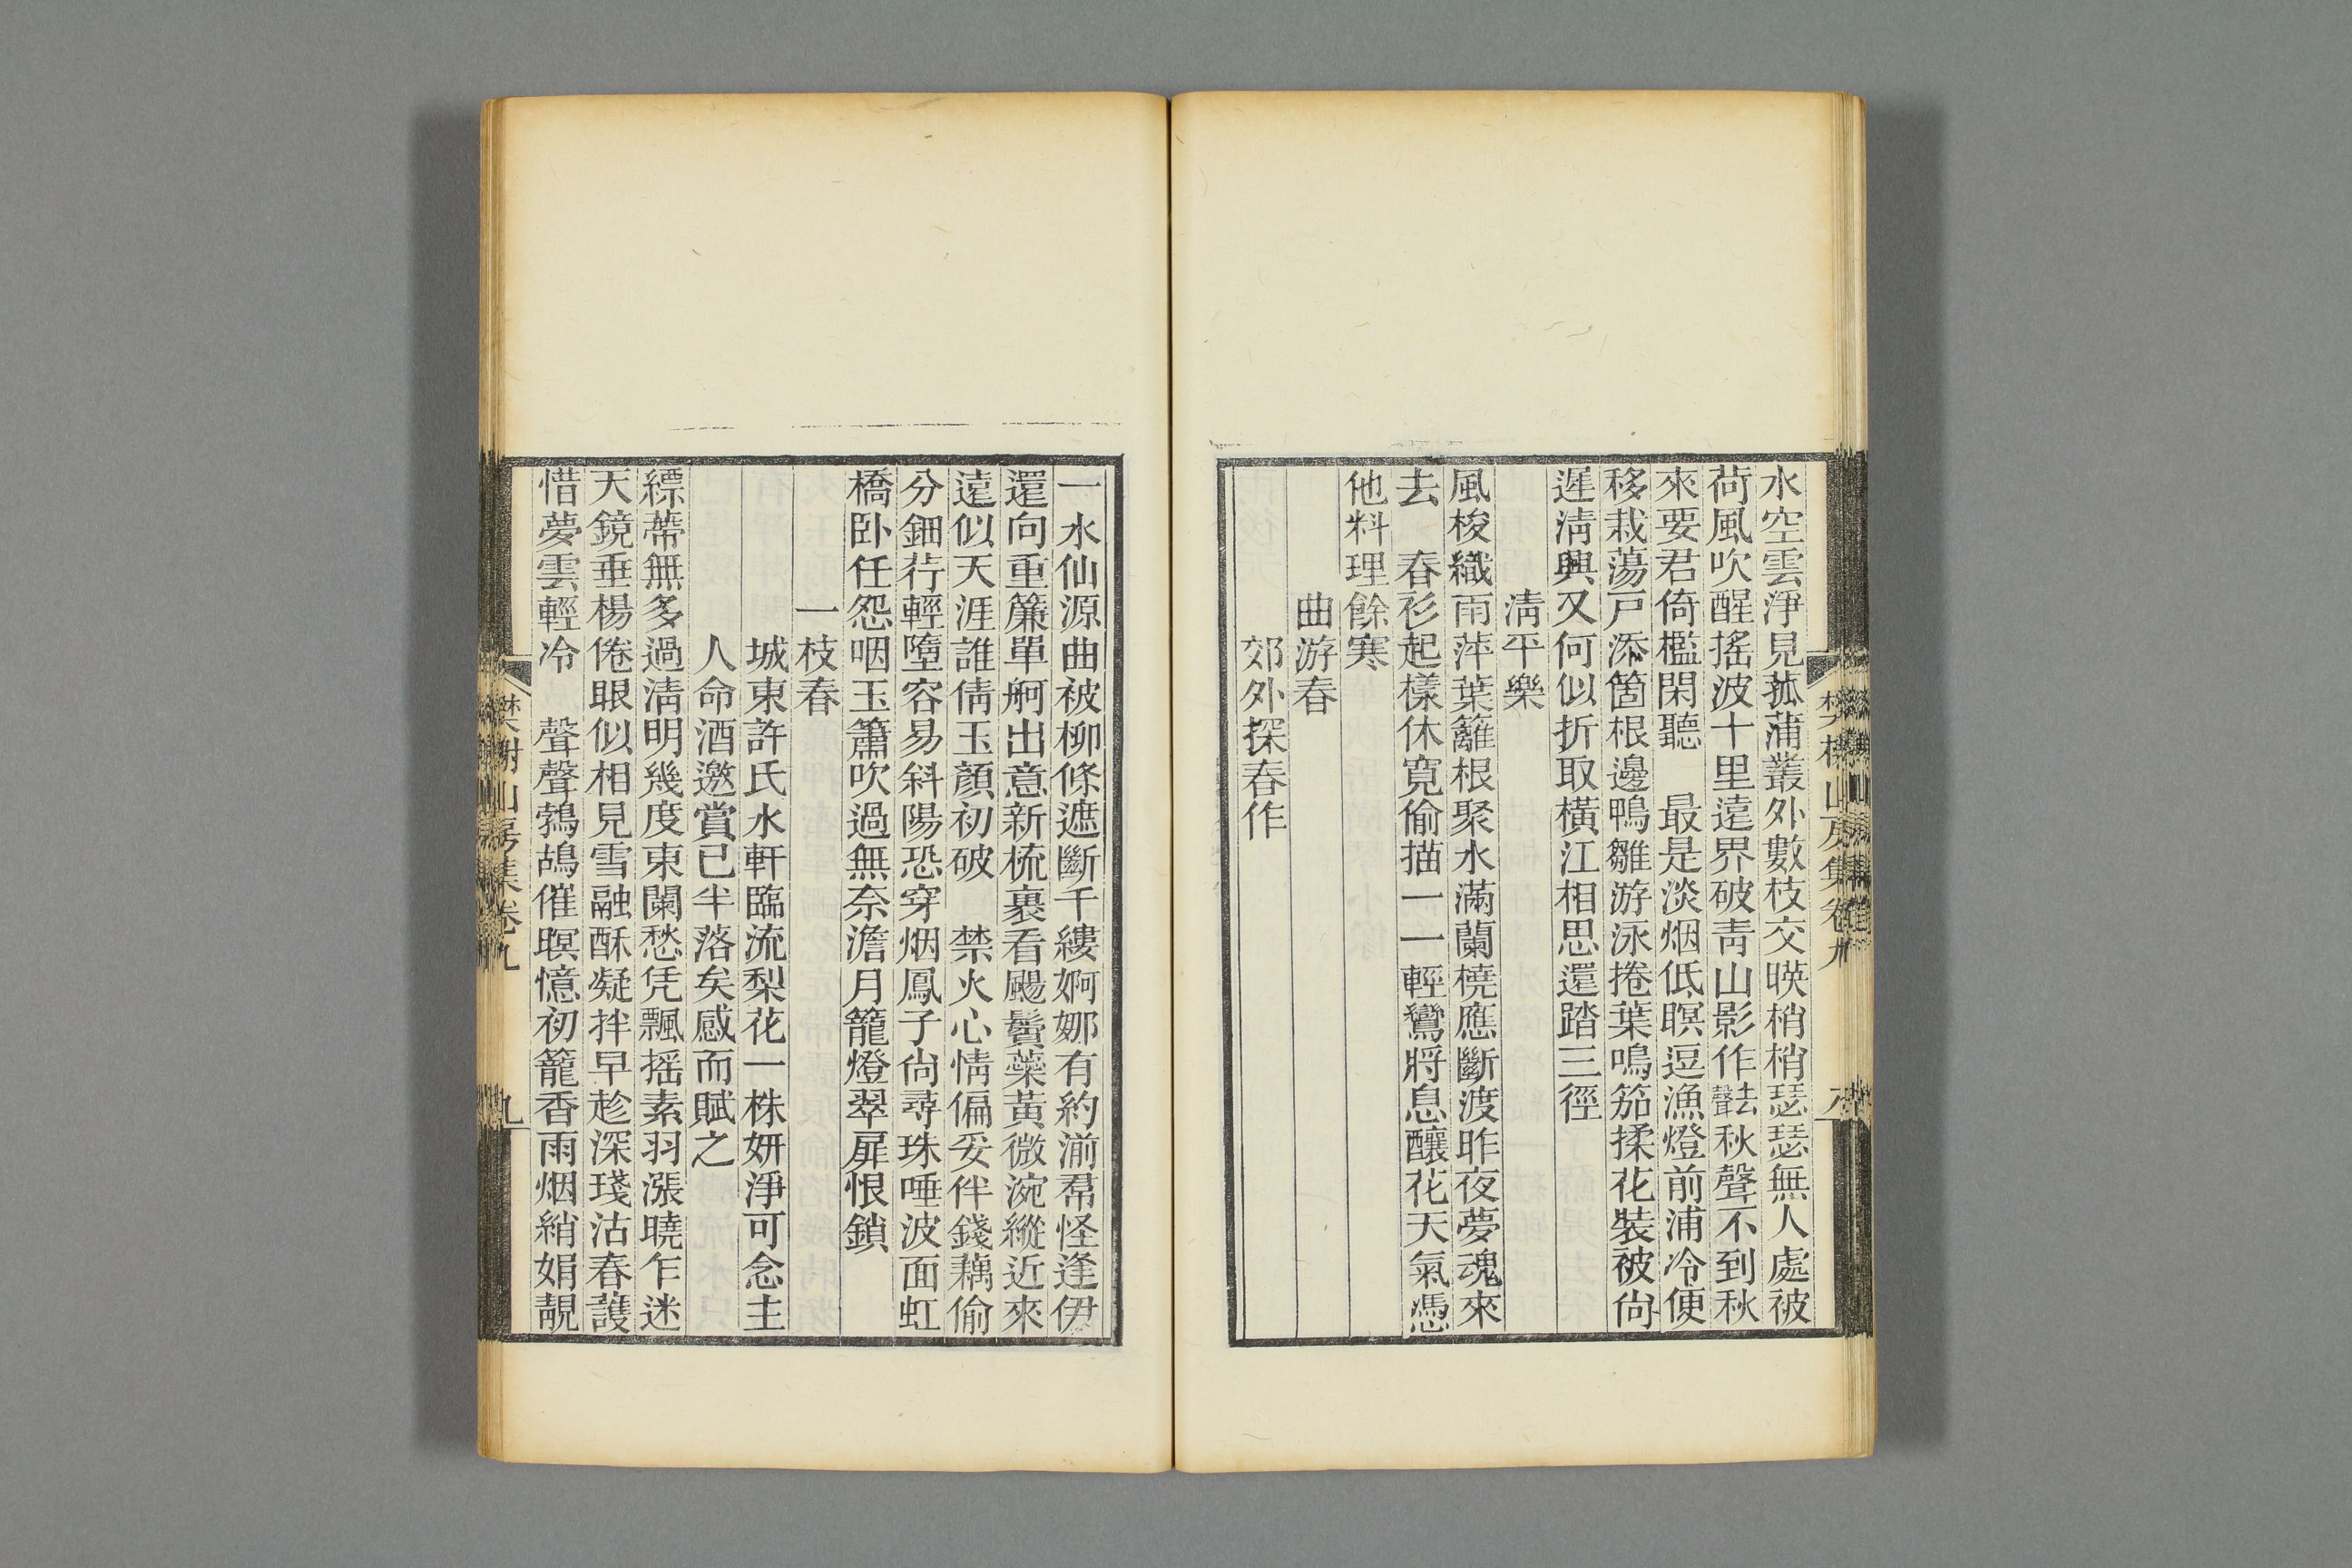 水空雲淨見菰蒲叢外數枝交暎梢梢瑟瑟無人處被
荷風吹醒搖波十里遠界破靑山影作去聲秋聲不到秋
來要君倚檻閑聽　最是淡烟低暝逗漁燈前浦冷便
移栽蕩戸添箇根邊鴨雛游泳捲葉鳴笳揉花裝被尙
遲淸興又何似折取橫江相思還踏三徑
淸平樂
風梭織雨萍葉籬根聚水滿蘭橈應斷渡昨夜夢魂來
去　春衫起樣休寬偷描一一輕鸞將息釀花天氣憑
他料理餘寒
曲游春
郊外探春作
一水仙源曲被柳條遮斷千縷婀娜有約湔帬怪逢伊
還向重簾單舸出意新梳裹看颺鬢蘂黃微涴縱近來
遠似天涯誰倩玉顏初破　禁火心情偏妥伴錢藕偷
分鈿荇輕墮容易斜陽恐穿烟鳳子尙尋珠唾波面虹
橋卧任怨咽玉簫吹過無奈澹月籠燈翠屛恨鎖
一枝春
城東許氏水軒臨流梨花一株妍淨可念主
人命酒邀賞已半落矣感而賦之
縹蔕無多過淸明幾度東闌愁凭飄搖素羽漲曉乍迷
天鏡垂楊倦眼似相見雪融酥凝拌早趁深琖沽春護
惜夢雲輕冷　聲聲鵓鴣催暝憶初籠香雨烟綃娟靚
樊榭山房集卷九
九